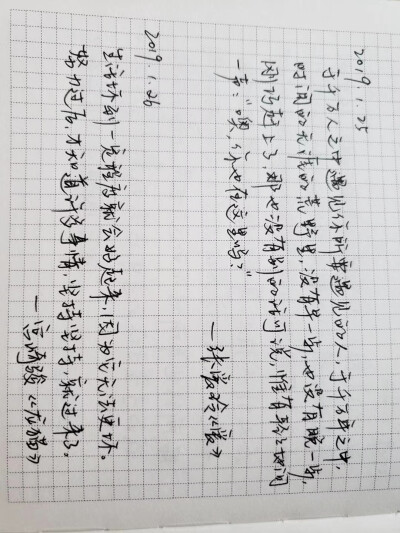 2019.1.25
于千万人之中遇见你所要遇见的人，于千万年之中，
时间的无涯的荒野里，没有早一步，也没有晚一步，
刚巧赶上了，那也没有别的话可说，惟有轻轻地问
一声："噢，你也在这里吗？"
——张爱玲《爱》
2019.1.26
生活坏到一定程度就会好起来，因为它无法更坏。
努力过后，才知道许多事情，坚持坚持，就过来了。
——宫崎骏《龙猫》